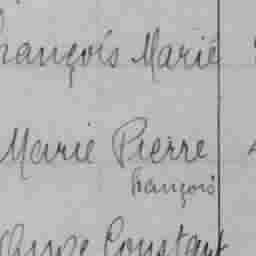 François Marie
Marie Pierre
François
Ange Constant